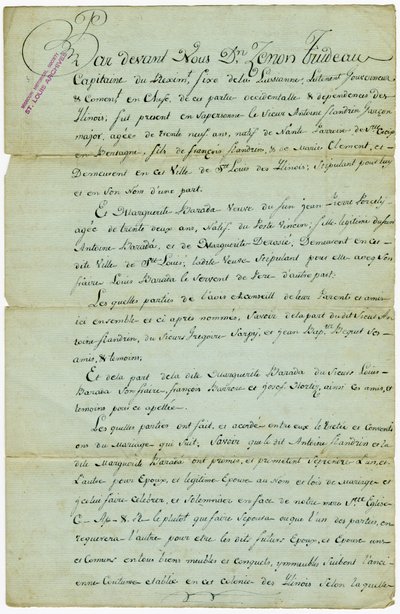 Par devant Nous Dn. Zenon Trudeau
Capitaine du Reximt. fixe de la Lusianne, Lutenent Gouverneur
& Coment. en Chefe de ces partie occidentalle & dependences des
Ilinois, fut present en Sa personne le Sieur Antoine Flandrin Garçon
major, agée de trente neuf ans, natif de Nante Parroise de Ste. Croix
en Bretagne, fils de françois Flandrin, & de Marie Clement, et
Demeurent en ces Ville de St. Louis des Ilinois; Stipulant pour luy
et en Son Nom d'une part.
Et Marguerite Barada Veuve du fun jean Pierre
agée de trente deux ans, Natif du Poste Vincen; fille legitime du fun
Antoine Barada, et de Marguerite Derosié, Demeurent en ces
dite Ville de St. Louis; ladite Veuve Stipulant pour elle avec Son
fraire Louis Barada le Servent de Pere d'autre part.
Les quelles parties de l'avis et conseill de leur Parents et amis
ici ensemble et ci après nommés, Savoir de la part du dit Sieur An-
toine Flandrin, du Sieurs Gregoire Sarpy, et jean Bapte. Ses
amis, & temoins;
Et de la part de la dite Marguerite Barada du Sieurs Louis
Barada Son fraire, françois et josef Hortez, ainsi Ses amis, et
temoins pour ce apellée.
Les quelles parties ont fait, et acordé entre eux le Traitée et Conventi
ons du Mariage qui Suit, Savoir que le dit Antoine Flandrin et la
dite Marguerite Barada ont promis, et prometent Se prendre L'un, et
L'autre pour Epoux, et legitime Epouse au Nom et lois de Mariage et
ycelui faire Celebrer, et Solemnier en face de notre mere Ste. Eglise
C. A. & R. le plutôt que faire Sepoura ou que l'un des parties, en
requerera l'autre pour etre les dits futurs Epoux, et Epouse uns
et Comuns en tous biens meubles et conquets, ymmeubles Suibent l'anci
enne Coutume etablie en ces colonie des Ilinois Selon laquelle
MISSOURI HISTORICAL SOCIETY
ST. LOUIS ARCHIVES